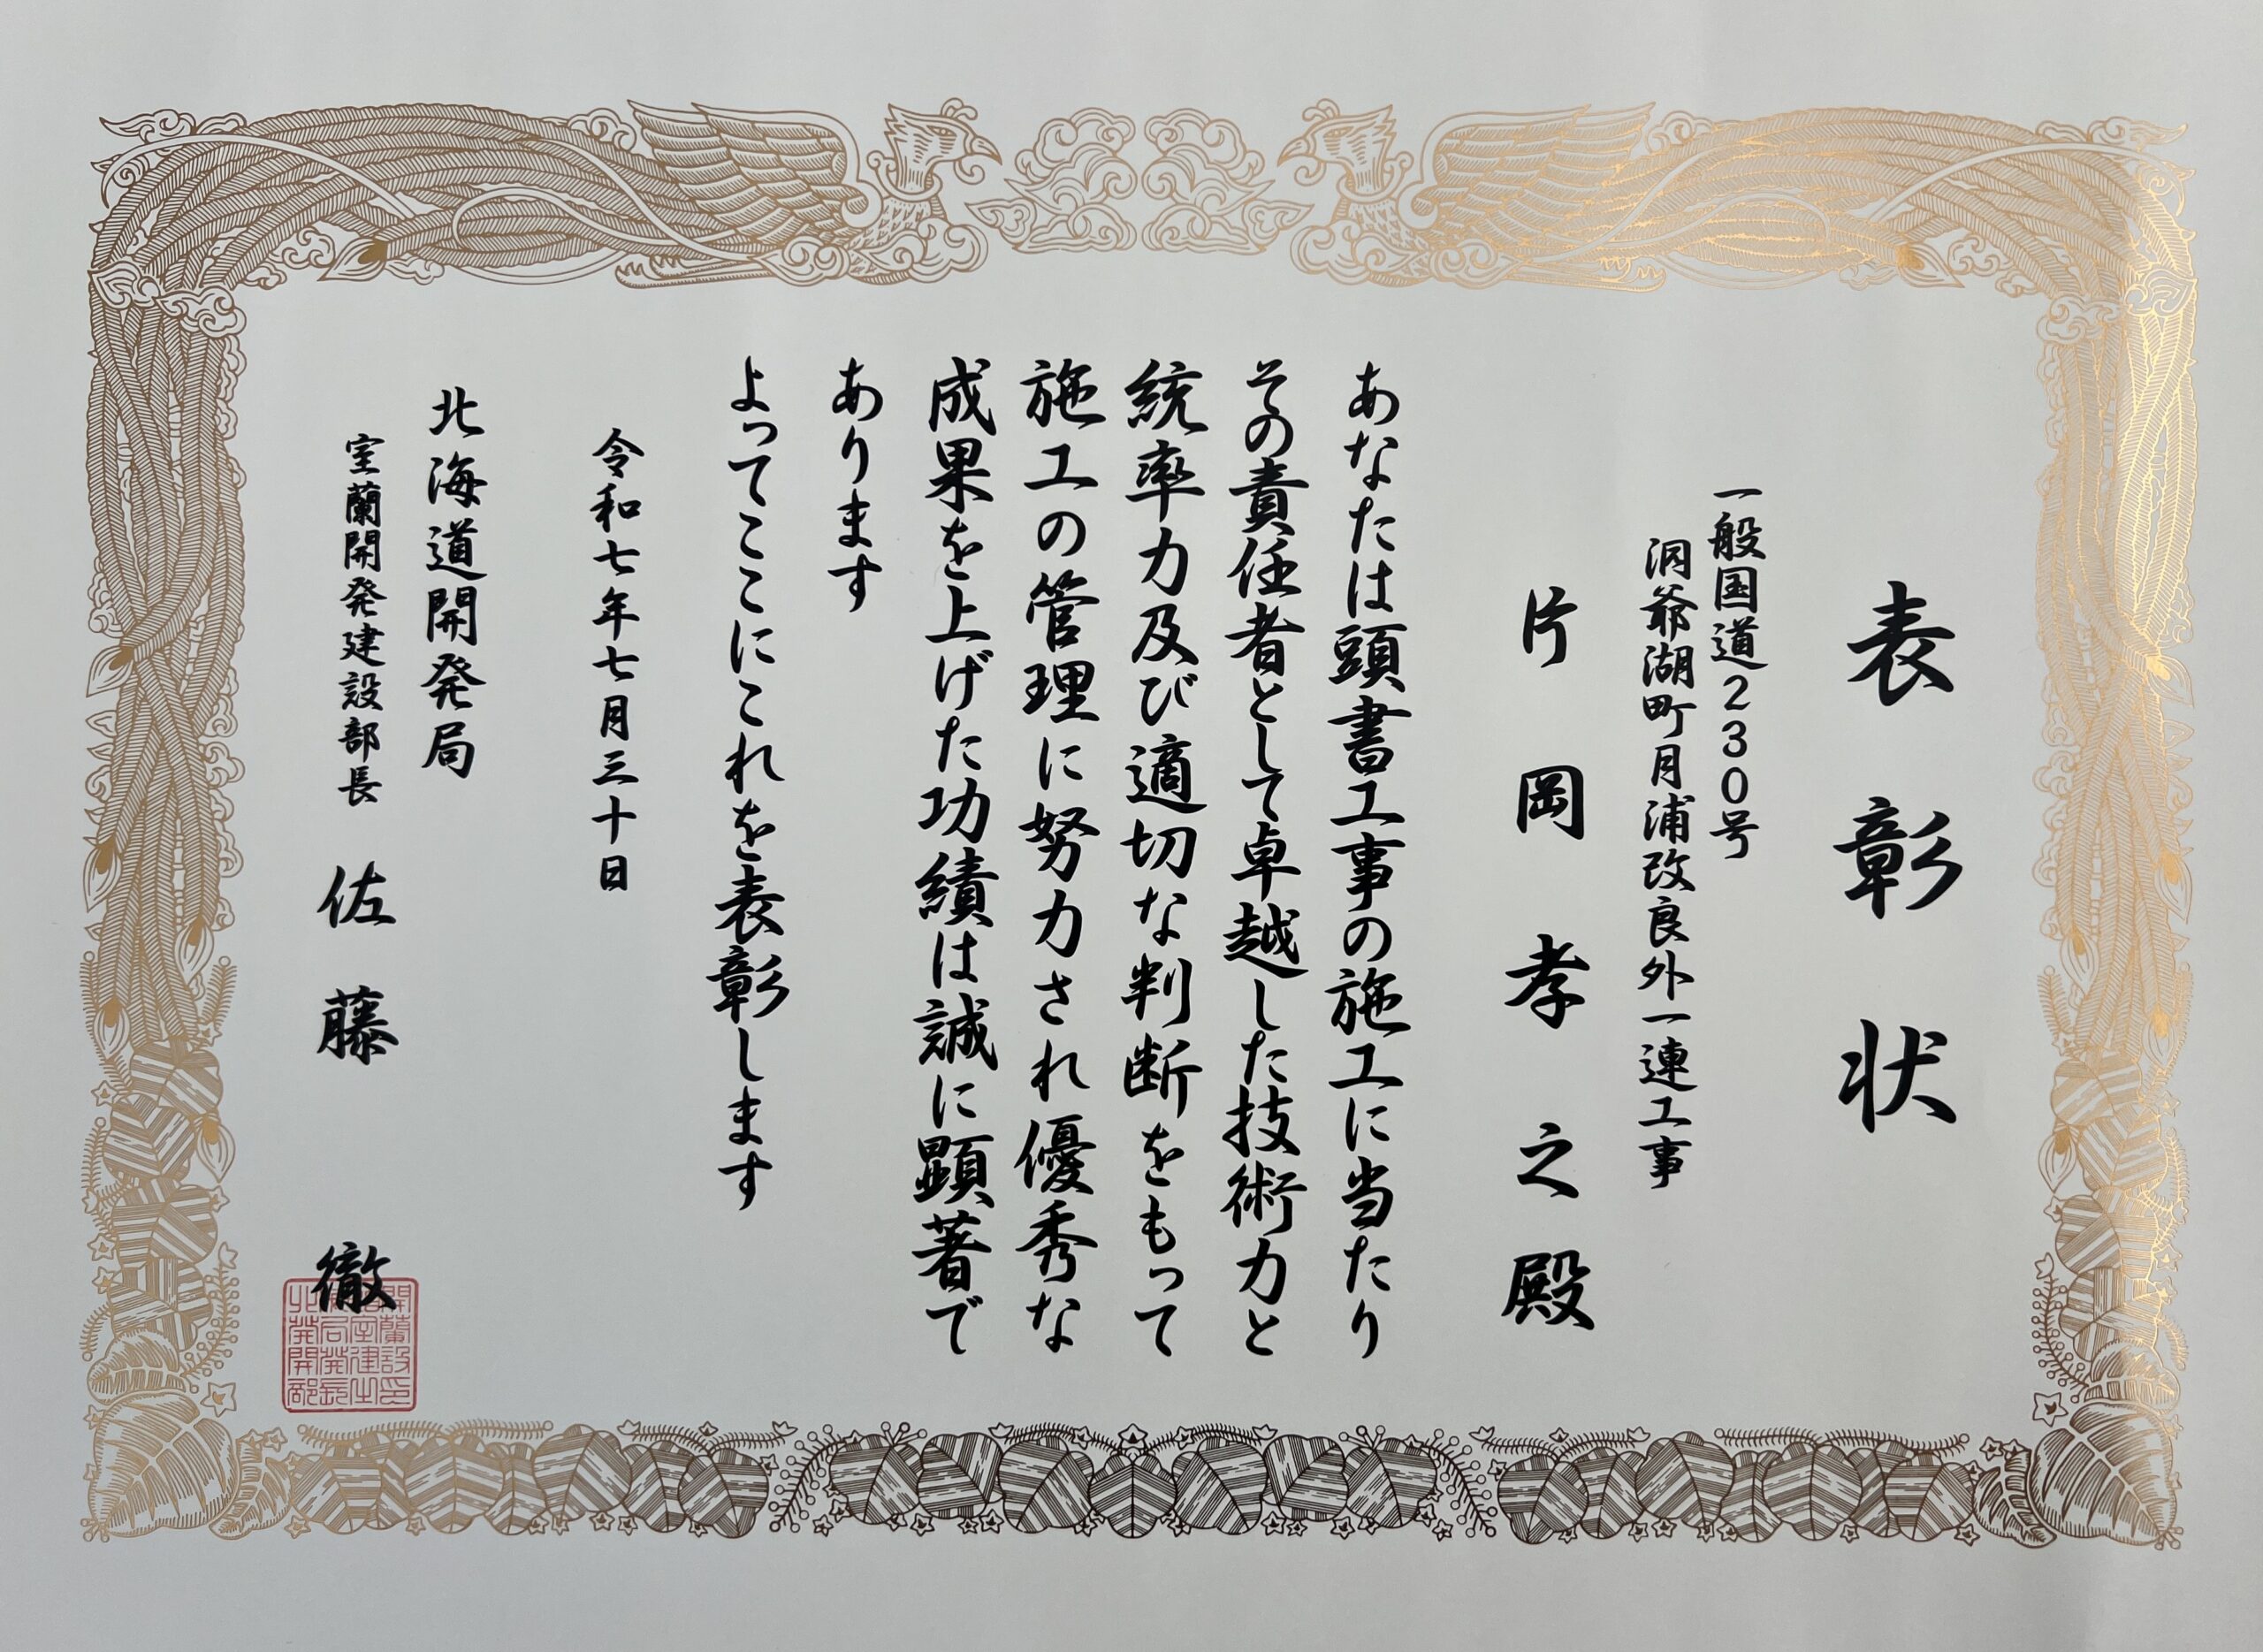 表彰状
一般国道230号
洞爺湖町月浦改良外一連工事
片岡孝之殿
あなたは頭書工事の施工に当たり
その責任者として卓越した技術力と
統率力及び適切な判断をもって
施工の管理に努力され優秀な
成果を上げた功績は誠に顕著で
あります
よってここにこれを表彰します
令和七年七月三十日
北海道開発局
室蘭開発建設部長 佐藤徹